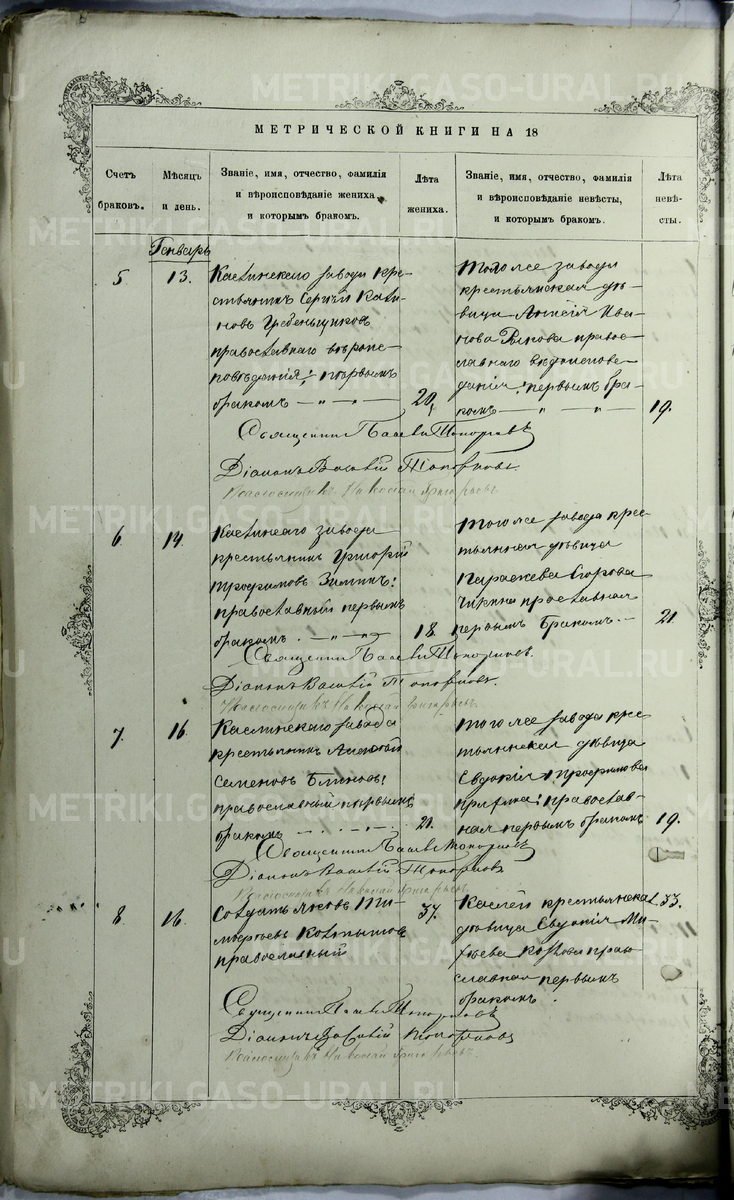 МЕТРИЧЕСКОЙ КНИГИ НА 18
Счетъ
браковъ.
Мѣсяцъ
и день.
Званіе, имя, отчество, фамилія
и вѣроисповѣданіе жениха,
и которымъ бракомъ.
Лѣта
жениха.
Званіе, имя, отчество, фамилія
и вѣроисповѣданіе невѣсты,
и которымъ бракомъ.
Лѣта
невѣ-
сты.
Генварь
5
13.
Каслинскаго завода кре-
стьянинъ Сергій
новъ Гребеньщиковъ
православнаго вѣроис-
повѣданія; первымъ
бракомъ — „ — „ —
20,
Того же завода
крестьянская дѣ-
вица Ива-
нова право-
славнаго вѣроисповѣ-
данія; первымъ бра-
комъ — „ —
19.
Священникъ Павелъ Топорковъ
Діаконъ Василій Топорковъ.
Николай Григорьевъ
6
14.
Каслинскаго завода
крестьянинъ Григорій
Трофимовъ Зиминъ:
православный первымъ
бракомъ. — „ — „
18.
Того же завода кре-
стьянская дѣвица
Параскева Егорова
православная
первымъ бракомъ. —
21
Священникъ Павелъ Топорковъ.
Діаконъ Василій Топорковъ.
Николай Григорьевъ.
7.
16.
Каслинскаго завода
крестьянинъ Алексѣй
Семеновъ Блиновъ;
православный первымъ
бракомъ
21.
Того же завода кре-
стьянская дѣвица
Евдокія Трофимова
православ-
ная первымъ бракомъ
19.
Священникъ Павелъ Топорковъ
Діаконъ Василій Топорковъ
Николай Григорьевъ.
8.
16.
Солдатъ Яковъ Ти-
мофѣевъ
православный
37.
Каслей крестьянская
дѣвица Евдокія
православная первымъ
бракомъ.
33.
Священникъ Павелъ Топорковъ
Діаконъ Василій Топорковъ
Николай Григорьевъ
METRIKI.GASO-URAL.RU